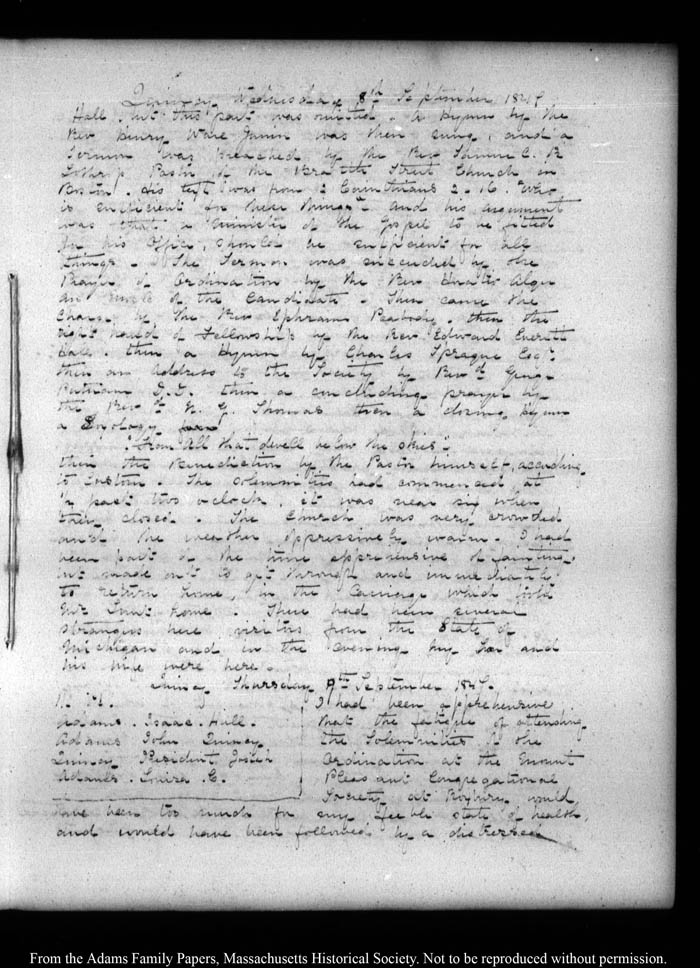 Quincy Wednesday 8th September 184
Hall but this part was omitted. A Hymn by the
Rev Henry Ware Junr was then sung, and a
Sermon was preached by the Rev Samuel K.
Lothrop Pastor of the Brattle Street Church in
Boston. His text was from 2 Corinthians 2.16. Who
is sufficient for these things and his argument
was that a minister of the Gospel to be fitted
for his Office, should be sufficient for all
things. The Sermon was succeeded by the
Prayer of Ordination by the Rev Horatio Alger
an uncle of the Candidate. Then came the
Charge by the Rev Ephraim Peabody. then the
right hand of Fellowship by the Rev. Edward Everett
Hale. then a Hymn by Charles Sprague Esqr.
then an Address to the Society by Revd George
Putnam D.D. then a concluding prayer by
the Rev
Thomas then a closing Hymn
a Doxology
"From all that dwell below the skies"
then the Benediction by the Pastor himself, according
to Custom. The Solemnities had commenced at
past two o'clock, it was near six when
they closed. The Church was very crowded
and the weather oppressively warm. I had
been part of the time apprehensive of fainting,
but made out to get through and immediately
to return home, in the Carriage which took
Mr Lunt home. There had been several
strangers here visitors from the State of
Michigan and in the evening my Son and
his wife were here.
Quincy Thursday 9th September 184
Adams. Isaac. Hull.
Adams John Quincy
Quincy President Josiah
Adams. Louisa. C.
I had been apprehensive
that the fatigue of attending
the Solemnities of the
Ordination at the Mount
Pleasant Congregational
Society at Roxbury would
have been too much for my feeble state of health,
and would have been followed by a distressed
From the Adams Family Papers, Massachusetts Historical Society. Not to be reproduced without permission.